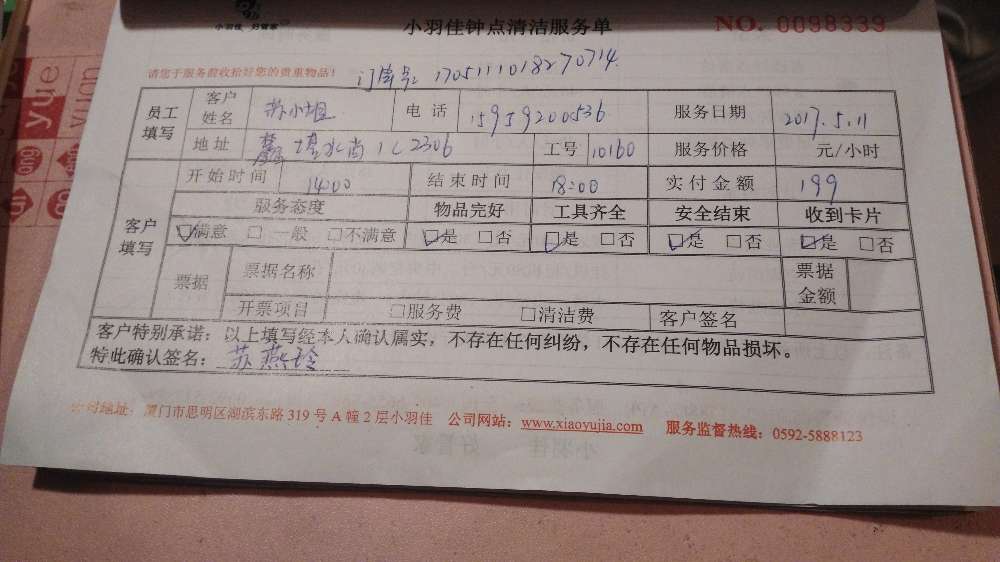 小羽佳 好管家
小羽佳钟点清洁服务单
NO. 0098339
请您于服务前收拾好您的贵重物品!
订单号: 170511101827 0714
员工填写
客户姓名 苏小姐 电话 15959200536 服务日期 2017.5.11
地址 水尚 1C2306 工号 10160 服务价格 元/小时
客户填写
开始时间 14:00 结束时间 18:00 实付金额 199
服务态度 物品完好 工具齐全 安全结束 收到卡片
☑满意 □一般 □不满意 ☑是 □否 ☑是 □否 ☑是 □否 ☑是 □否
票据 票据名称 票据金额
开票项目 □服务费 □清洁费 客户签名
客户特别承诺:以上填写经本人确认属实,不存在任何纠纷,不存在任何物品损坏。
特此确认签名: 苏燕玲
地址: 厦门市思明区湖滨东路 319 号 A 幢 2 层小羽佳 公司网站: www.xiaoyujia.com 服务监督热线: 0592-5888123
yue
yun
ang